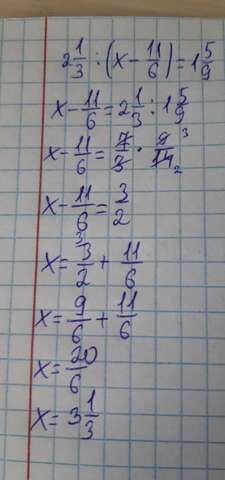 2 1/3 : (x - 11/6) = 1 5/9
x - 11/6 = 2 1/3 : 1 5/9
x - 11/6 = 7/3 · 9/14 3 2
x - 11/6 = 3/2
x = 3/2 3 + 11/6
x = 9/6 + 11/6
x = 20/6
x = 3 1/3